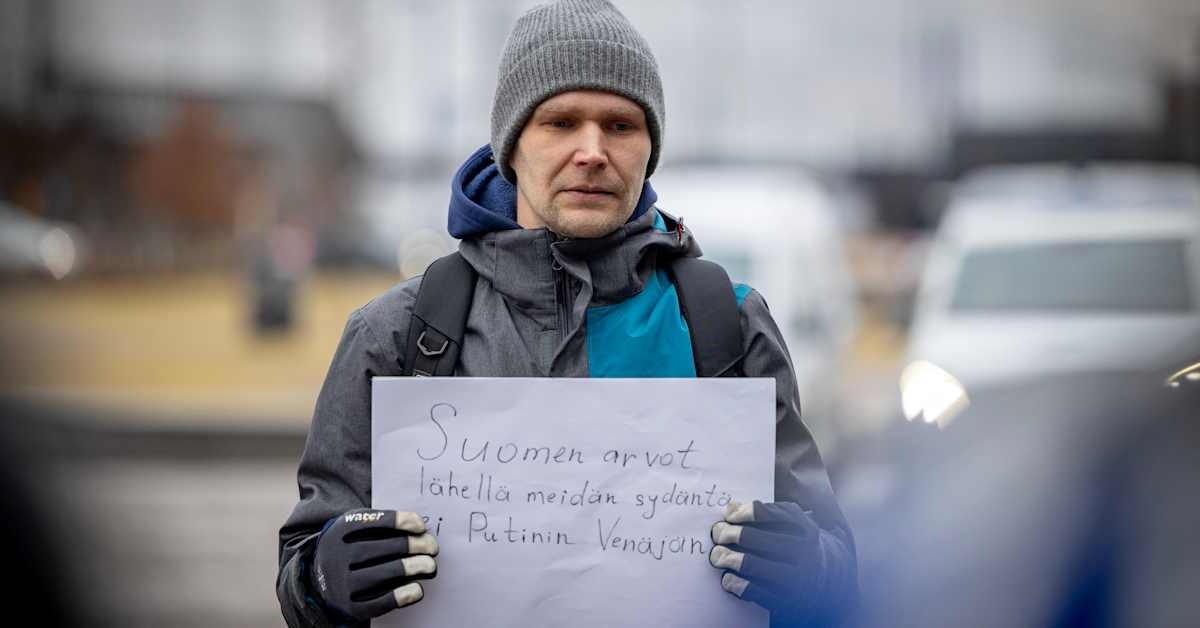 Suomen arvot
lähellä meidän sydäntä
ei Putinin Venäjän
water